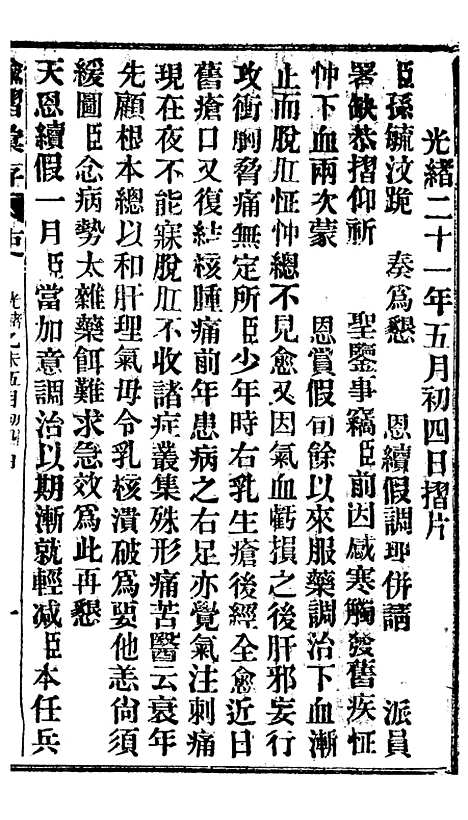 光緒二十一年五月初四日摺片
臣孫毓汶跪　奏爲懇　恩續假調理併請　派員
署缺恭摺仰祈　聖鑒事竊臣前因感寒觸發舊疾怔
忡下血兩次蒙　恩賞假旬餘以來服藥調治下血漸
止而脫肛怔忡總不見愈又因氣血虧損之後肝邪妄行
攻衝胸脅痛無定所臣少年時右乳生瘡後經全愈近日
舊瘡口又復結核腫痛前年患病之右足亦覺氣注刺痛
現在夜不能寐脫肛不收諸症叢集殊形痛苦醫云衰年
先顧根本總以和肝理氣毋令乳核潰破爲要他恙尙須
緩圖臣念病勢太雜藥餌難求急效爲此再懇
天恩續假一月臣當加意調治以期漸就輕減臣本任兵
諭摺彙存　光緒乙未五月初四日　一